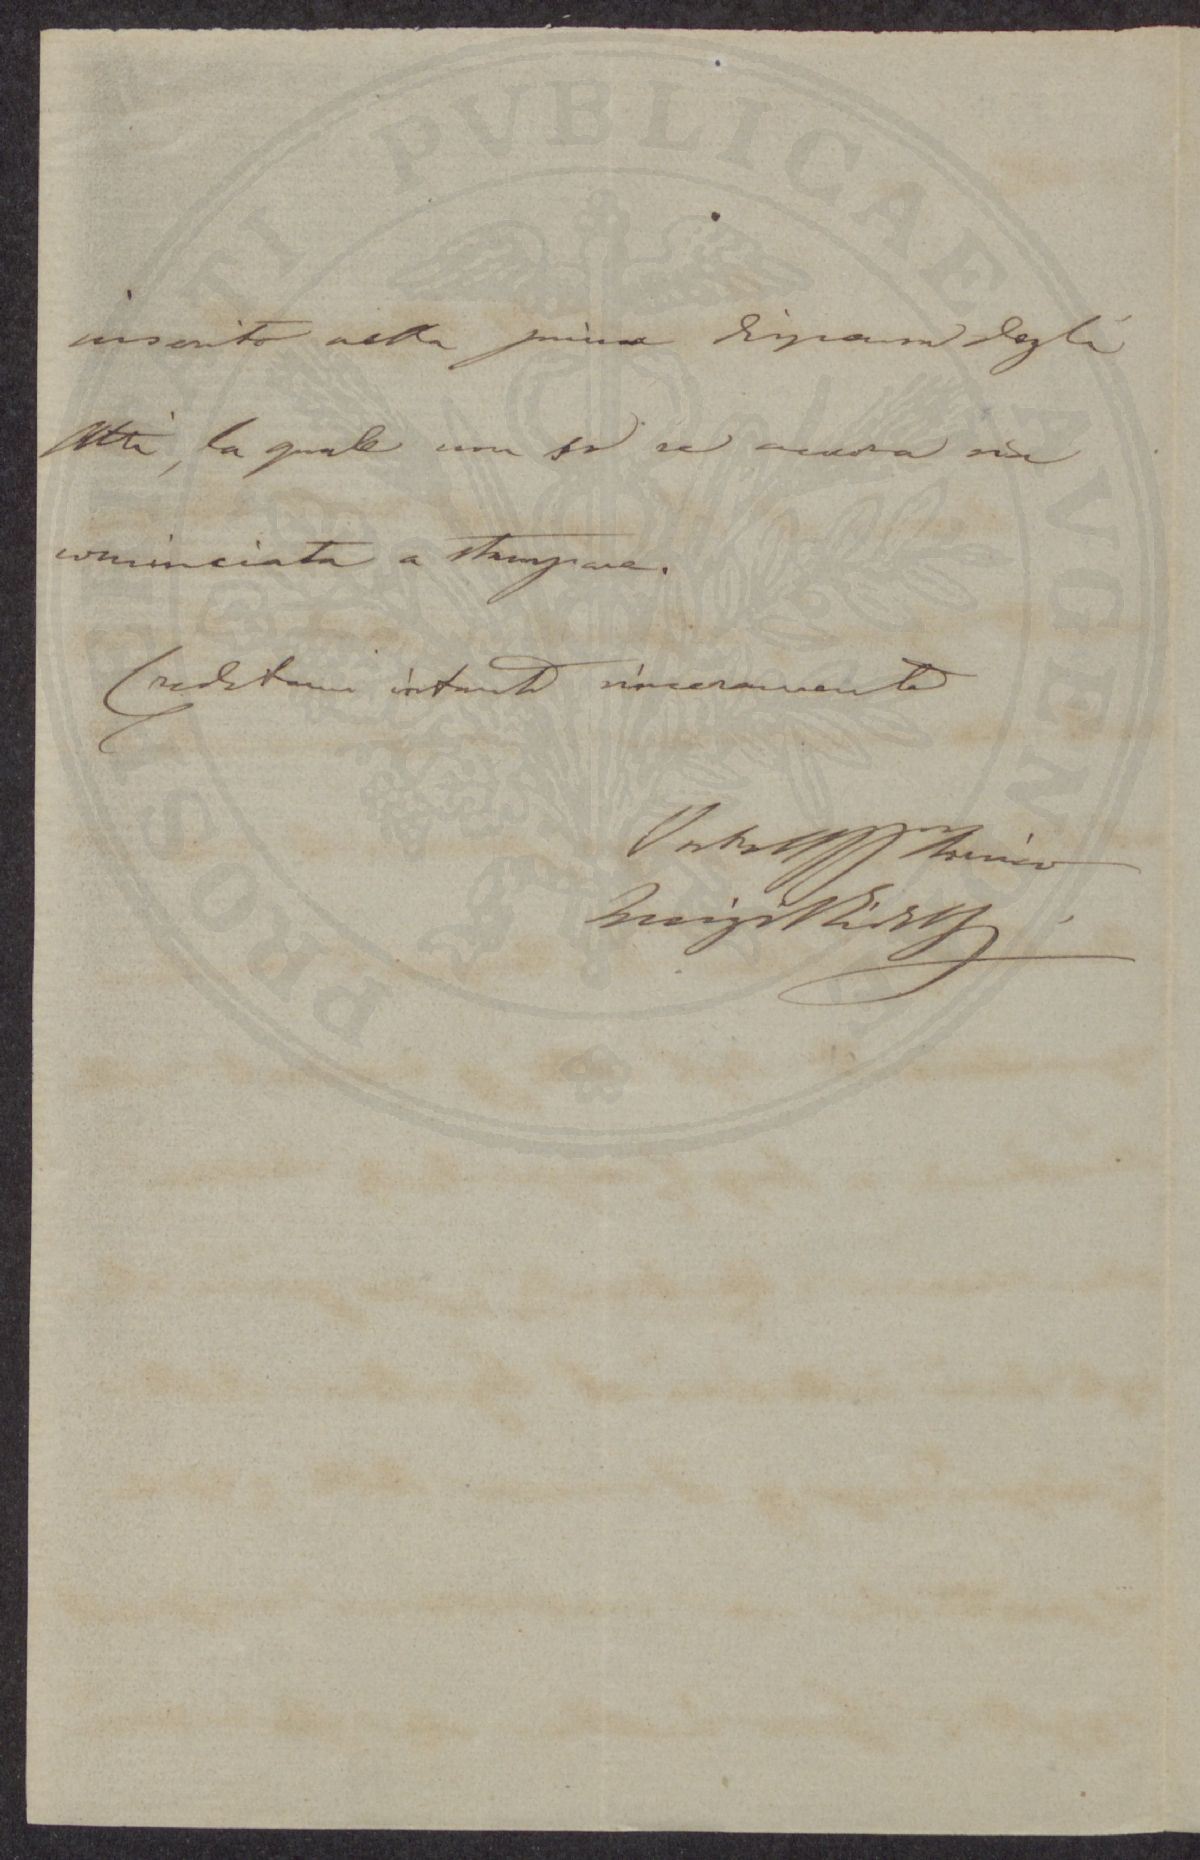 inserito nella prima dispensa degli
Atti, la quale non so se ancora sia
cominciata a stampare.
Credetemi intanto sinceramente
Vostro Amico
Luigi
PROSPERITATI PVBLICAE AVGENDAE